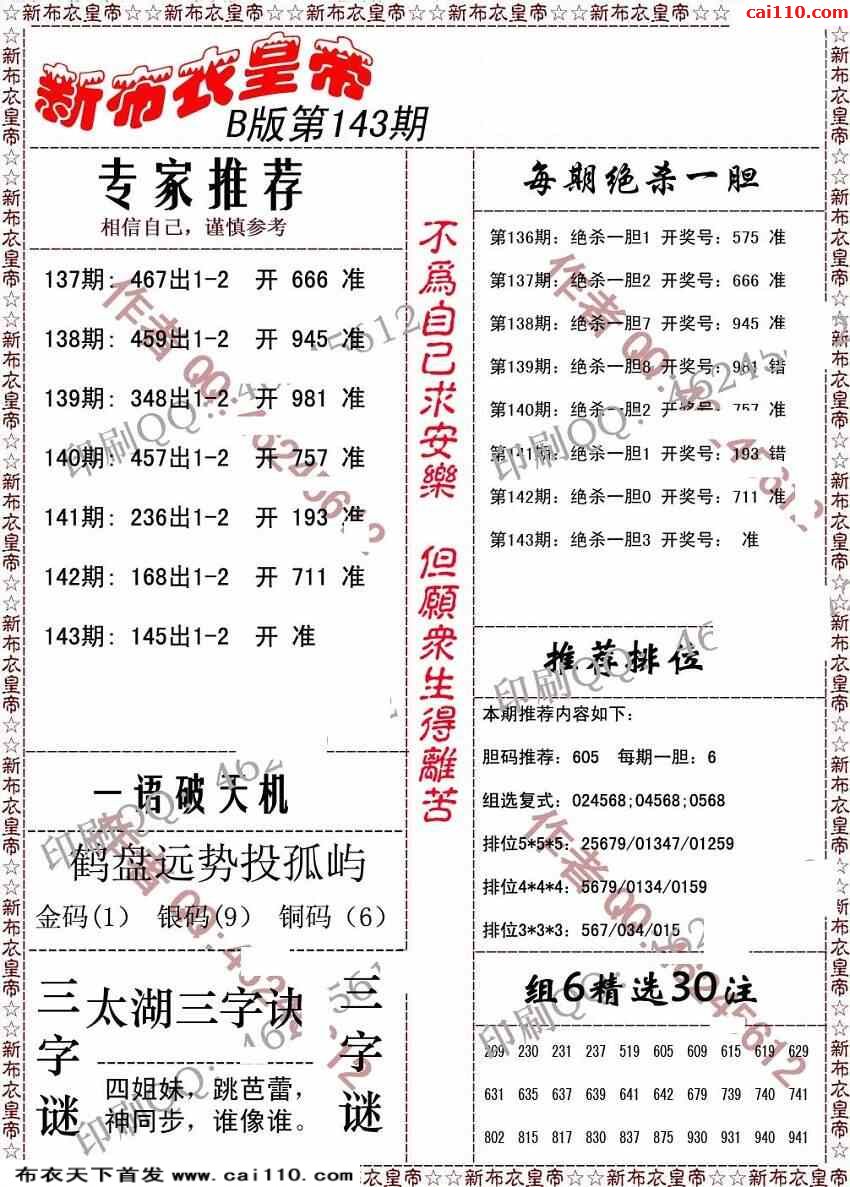 ☆☆新布衣皇帝☆☆新布衣皇帝☆☆新布衣皇帝☆☆新布衣皇帝☆☆新布衣皇帝☆☆
cai110.com
新布衣皇帝
B版第143期
专家推荐
相信自己，谨慎参考
137期: 467出1-2 开 666 准
138期: 459出1-2 开 945 准
139期: 348出1-2 开 981 准
140期: 457出1-2 开 757 准
141期: 236出1-2 开 193 准
142期: 168出1-2 开 711 准
143期: 145出1-2 开 准
一语破天机
鹤盘远势投孤屿
金码(1) 银码(9) 铜码（6）
三字谜
太湖三字诀
四姐妹，跳芭蕾，
神同步，谁像谁。
三字谜
不爲自己求安樂 但願衆生得離苦
每期绝杀一胆
第136期: 绝杀一胆1 开奖号: 575 准
第137期: 绝杀一胆2 开奖号: 666 准
第138期: 绝杀一胆7 开奖号: 945 准
第139期: 绝杀一胆8 开奖号: 981 错
第140期: 绝杀一胆2 开奖号: 757 准
第141期: 绝杀一胆1 开奖号: 193 错
第142期: 绝杀一胆0 开奖号: 711 准
第143期: 绝杀一胆3 开奖号: 准
推荐排位
本期推荐内容如下:
胆码推荐: 605 每期一胆: 6
组选复式: 024568;04568;0568
排位5*5*5: 25679/01347/01259
排位4*4*4: 5679/0134/0159
排位3*3*3: 567/034/015
组6精选30注
209 230 231 237 519 605 609 615 619 629
631 635 637 639 641 642 679 739 740 741
802 815 817 830 837 875 930 931 940 941
布衣天下首发 www.cai110.com
衣皇帝☆☆新布衣皇帝☆☆新布衣皇帝☆☆新布衣皇帝☆☆